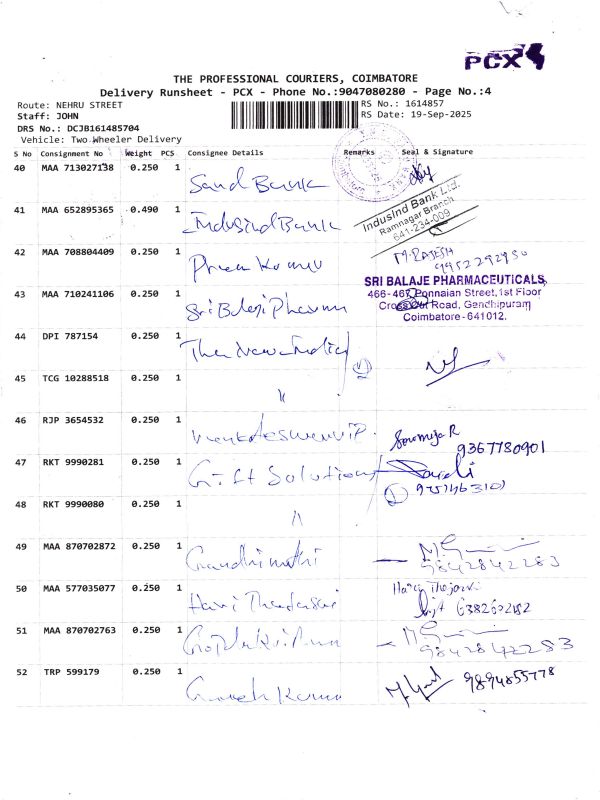 PCX
THE PROFESSIONAL COURIERS, COIMBATORE
Delivery Runsheet - PCX - Phone No.:9047080280 - Page No.:4
Route: NEHRU STREET
RS No.: 1614857
Staff: JOHN
RS Date: 19-Sep-2025
DRS No.: DCJB161485704
Vehicle: Two Wheeler Delivery
S No Consignment No Weight PCS Consignee Details Remarks Seal & Signature
40 MAA 713027138 0.250 1 Sand Bank
41 MAA 652895365 0.490 1 Indusind Bank
IndusInd Bank Ltd.
Ramnagar Branch
641-234-009
42 MAA 708804409 0.250 1 Prem Kumar
M. RAJESH
9952292950
43 MAA 710241106 0.250 1 Sri Balaji Pharma
SRI BALAJE PHARMACEUTICALS,
466-467, Ponnaian Street, 1st Floor
Cross Cut Road, Gandhipuram
Coimbatore-641012.
44 DPI 787154 0.250 1 The New India
45 TCG 10288518 0.250 1 "
46 RJP 3654532 0.250 1
Sowmiya R
9367780901
47 RKT 9990281 0.250 1 Gift Solutions
48 RKT 9990080 0.250 1 "
49 MAA 870702872 0.250 1 Gandhimathi
9842842283
50 MAA 577035077 0.250 1 Hari
6382602182
51 MAA 870702763 0.250 1
9842842283
52 TRP 599179 0.250 1 Ganesh Kumar
9894855778